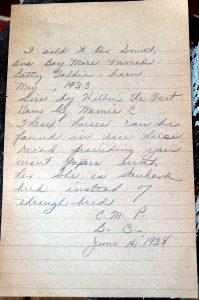 I sold to Dr Smith
one Bay Mare named
Betty Goldie. born
May , 1933
Sire by Wilbur the Great
Dams by Mamie C
These horses can be
found in race horse
record providing you
want papers with
her. She is standard
bred instead of
through bred.
C. M. P.
S. C.
June 16, 1938